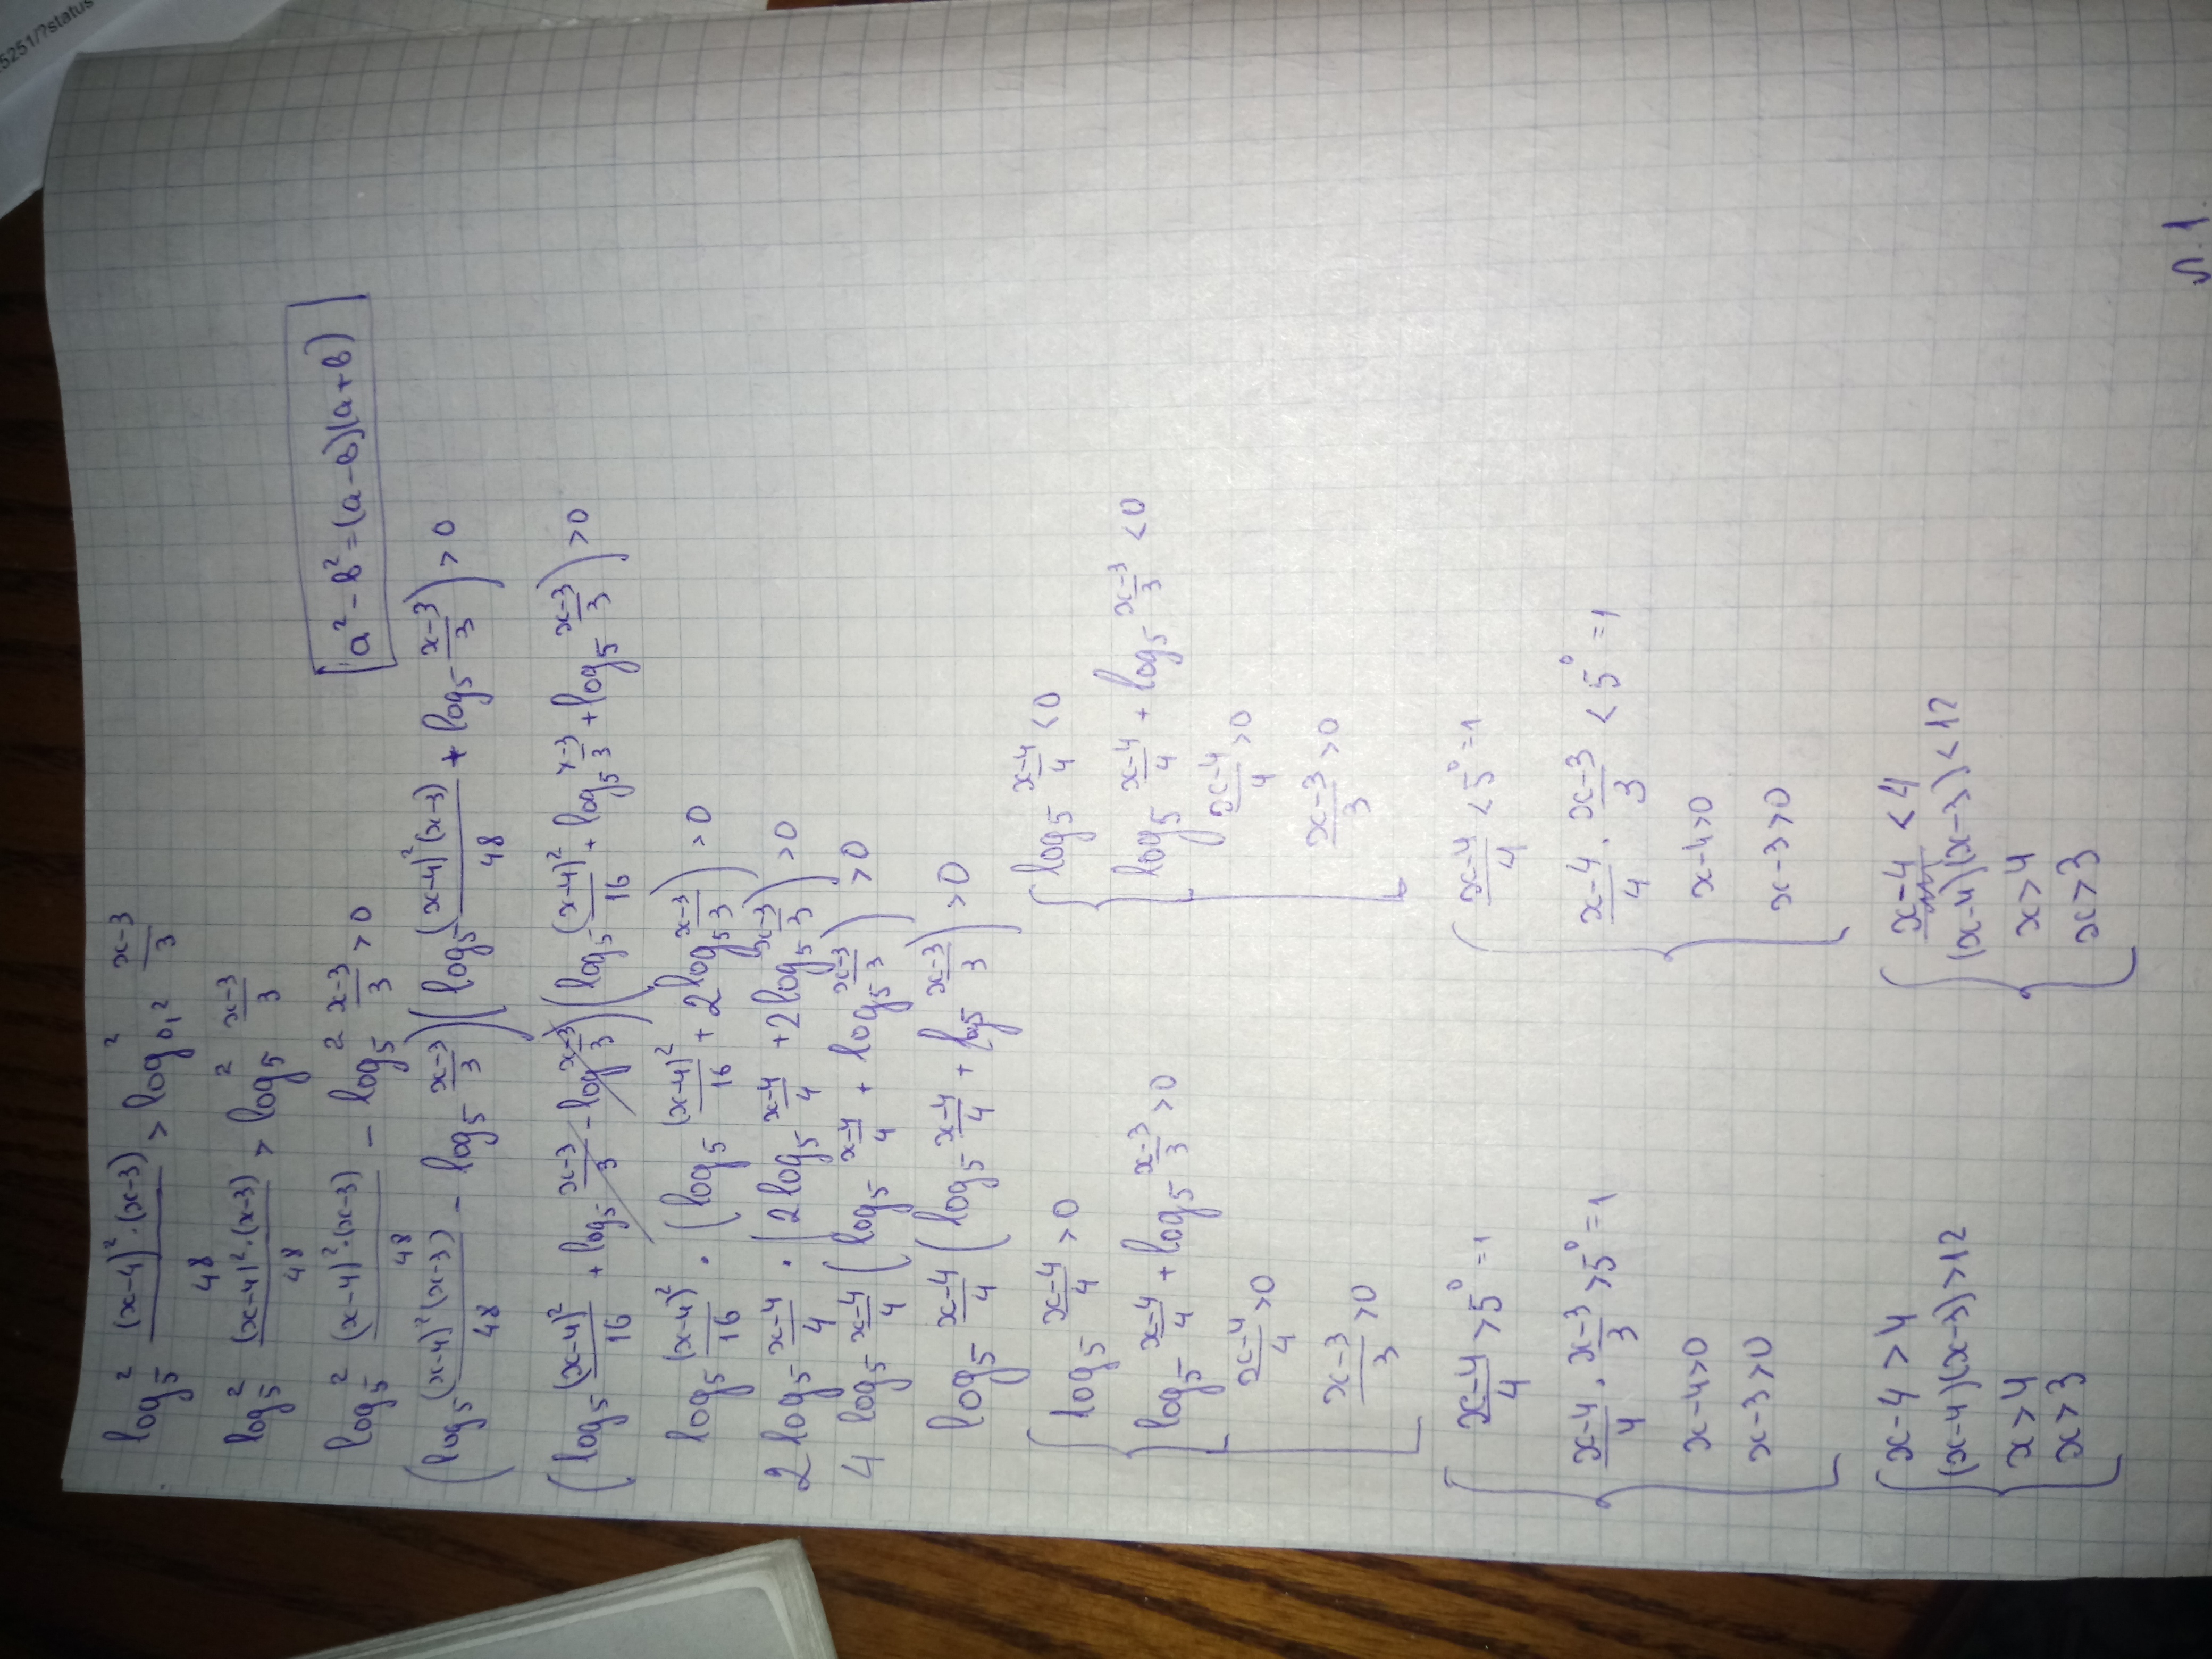 5251/?status
log₅² (x-4)²·(x-3)/48 > log₀,₂² (x-3)/3
log₅² (x-4)²·(x-3)/48 > log₅² (x-3)/3
log₅² (x-4)²·(x-3)/48 - log₅² (x-3)/3 > 0
a² - b² = (a-b)(a+b)
(log₅ (x-4)²(x-3)/48 - log₅ (x-3)/3)(log₅ (x-4)²(x-3)/48 + log₅ (x-3)/3) > 0
(log₅ (x-4)²/16 + log₅ (x-3)/3 - log (x-3)/3)(log₅ (x-4)²/16 + log₅ (x-3)/3 + log₅ (x-3)/3) > 0
log₅ (x-4)²/16 · (log₅ (x-4)²/16 + 2log₅ (x-3)/3) > 0
2log₅ (x-4)/4 · (2log₅ (x-4)/4 + 2log₅ (x-3)/3) > 0
4 log₅ (x-4)/4 (log₅ (x-4)/4 + log₅ (x-3)/3) > 0
log₅ (x-4)/4 (log₅ (x-4)/4 + log₅ (x-3)/3) > 0
{ log₅ (x-4)/4 > 0 { log₅ (x-4)/4 < 0
log₅ (x-4)/4 + log₅ (x-3)/3 > 0 log₅ (x-4)/4 + log₅ (x-3)/3 < 0
(x-4)/4 > 0 (x-4)/4 > 0
(x-3)/3 > 0 (x-3)/3 > 0
{ (x-4)/4 > 5⁰ = 1 { (x-4)/4 < 5⁰ = 1
(x-4)/4 · (x-3)/3 > 5⁰ = 1 (x-4)/4 · (x-3)/3 < 5⁰ = 1
x-4>0 x-4>0
x-3>0 x-3>0
{ x-4 > 4 { x-4 < 4
(x-4)(x-3) > 12 (x-4)(x-3) < 12
x>4 x>4
x>3 x>3